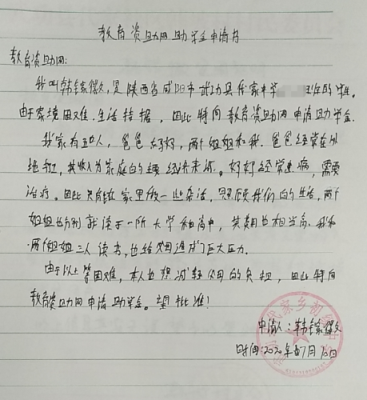 教育资助网助学金申请书
教育资助网:
我叫韩锦儒,是陕西省咸阳市武功县 中学 班的学生。
由于家境困难,生活拮据,因此特向教育资助网申请助学金。
我家有五口人,爸爸妈妈,两个姐姐和我。爸爸经常在外
,其收入为家庭的主要经济来源。妈妈经常患病,需要
治疗。因此只能在家里做一些杂活,照顾我们的生活,两个
姐姐也分别就读于一所大学和高中,其费用也相当高。我和
两个姐姐三人读书,也给爸妈造成了巨大压力。
由于以上等困难,本人为减轻爸妈的负担,因此特向
教育资助网申请助学金。望批准!
申请人:韩锦
时间2020年 7月10日